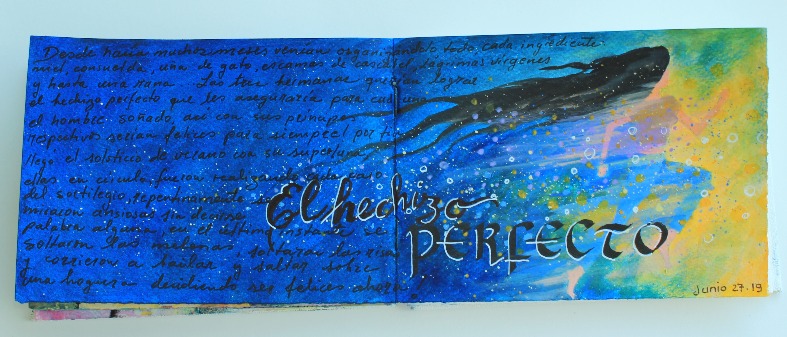 Desde hacía muchos meses venían organizándolo todo, cada ingrediente:
miel, consuelda, uña de gato, escamas de cascabel, lágrimas vírgenes
y hasta una rana. Las tres hermanas querían lograr
el hechizo perfecto que les aseguraría para cada una
el hombre soñado, así con sus príncipes
respectivos serían felices para siempre! por fin
llegó el solsticio de verano con su superluna
ellas en círculo fueron realizando cada paso
del sortilegio, repentinamente se
miraron ansiosas sin decirse
palabra alguna, en el último instante se
soltaron las melenas, soltaron las risas
y corrieron a bailar y saltar sobre
una hoguera decidiendo ser felices ahora!
El hechizo
PERFECTO
Junio 27.19